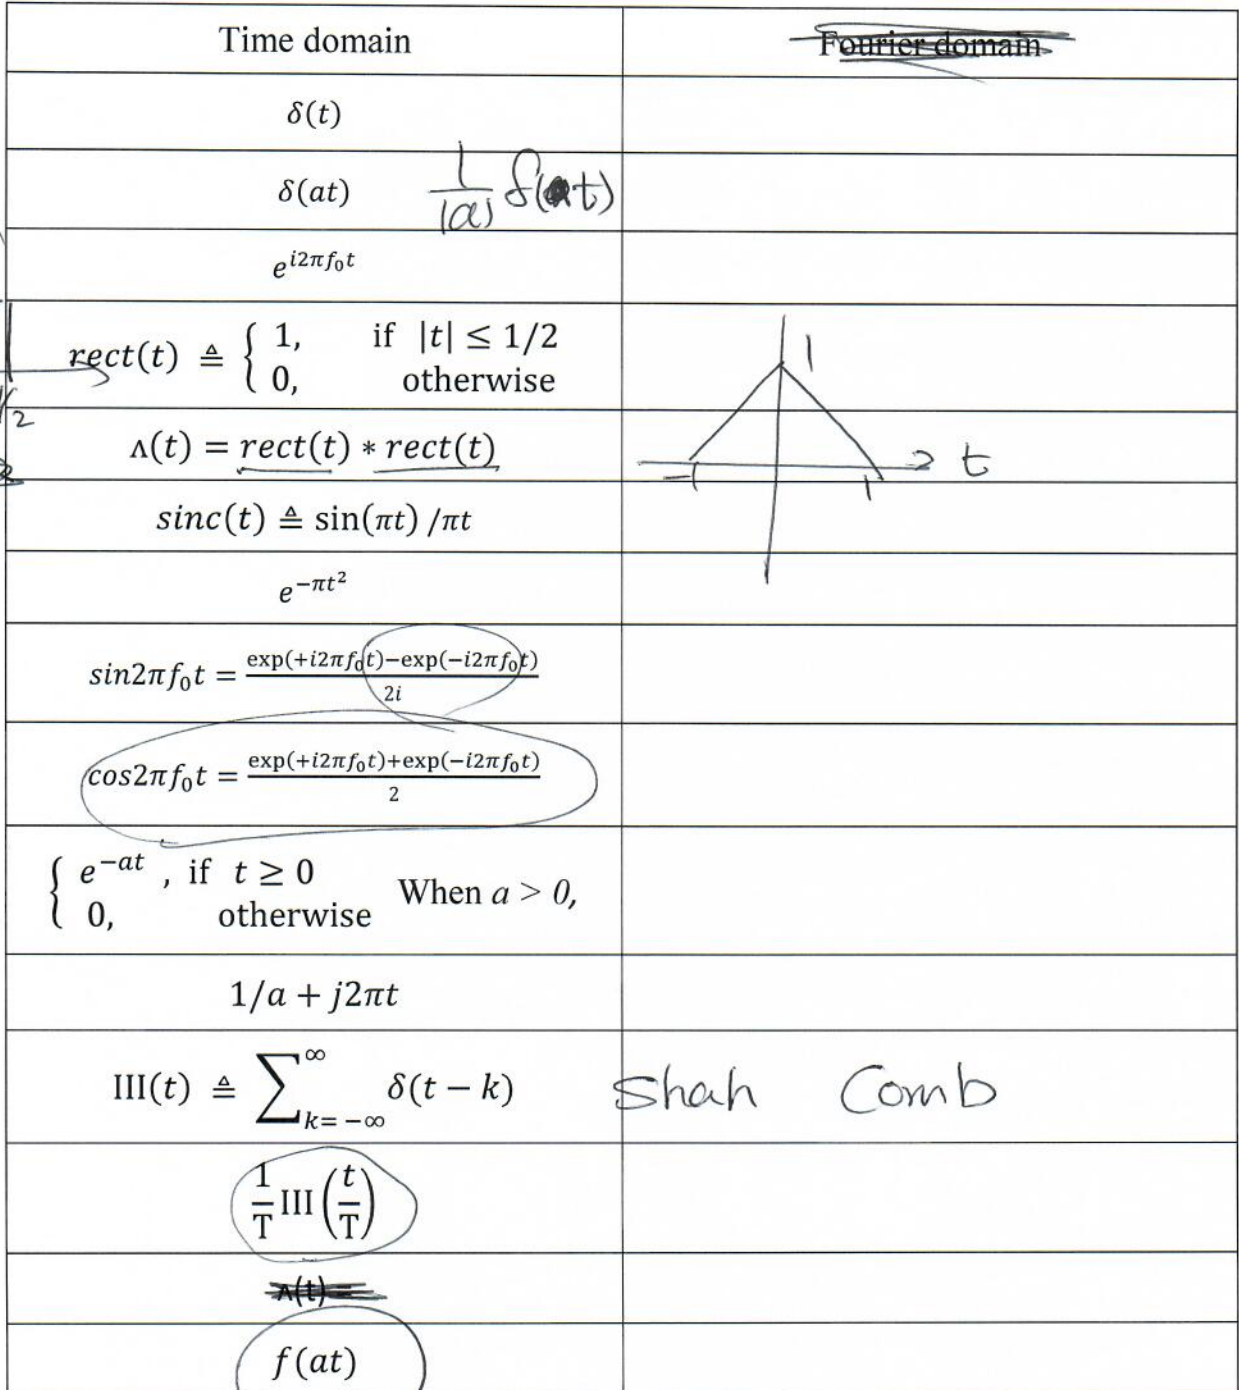 Time domain
Fourier domain
δ(t)
δ(at) 1/|a| δ(t)
e^{i2πf₀t}
rect(t) ≜ { 1, if |t| ≤ 1/2
0, otherwise
1
∧(t) = rect(t) ∗ rect(t)
-1 1 t
sinc(t) ≜ sin(πt) /πt
e^{−πt²}
sin2πf₀t = exp(+i2πf₀t)−exp(−i2πf₀t) / 2i
cos2πf₀t = exp(+i2πf₀t)+exp(−i2πf₀t) / 2
{ e^{−at} , if t ≥ 0
0, otherwise When a > 0,
1/a + j2πt
III(t) ≜ ∑_{k=−∞}^{∞} δ(t − k) Shah Comb
1/T III(t/T)
∧(t) =
f(at)